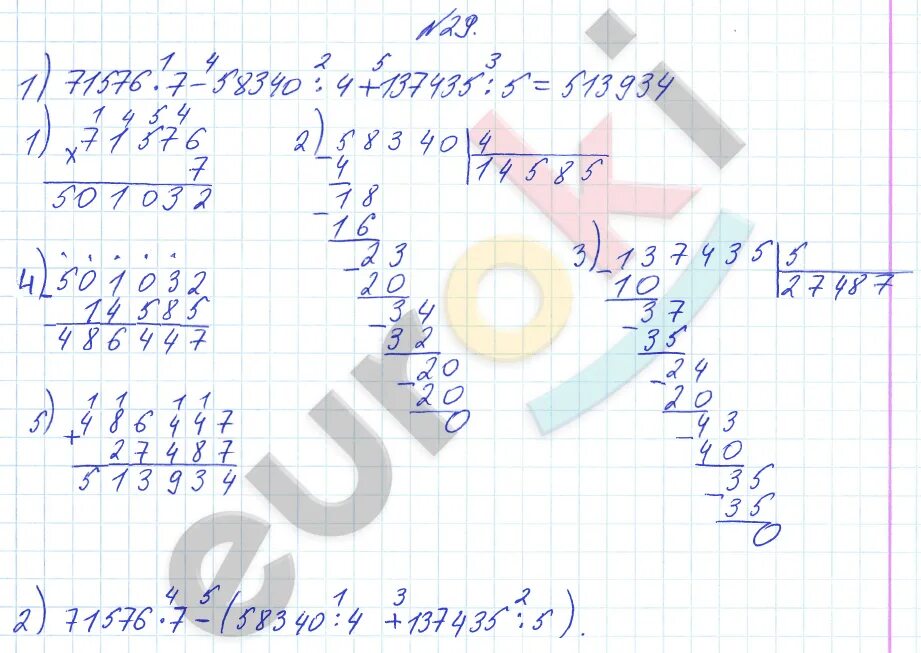 №29.
1) 71576 · 7 - 58340 : 4 + 137435 : 5 = 513934
1 4 2 5 3
1) 1 4 5 4
× 71576
7
501032
2) - 58340 | 4
14585
4
- 18
16
- 23
20
- 34
32
- 20
20
0
3) - 137435 | 5
27487
10
- 37
35
- 24
20
- 43
40
- 35
35
0
4) - 501032
14585
486447
5) 1 1 1 1
+ 486447
27487
513934
4 5 1 3 2
2) 71576 · 7 - (58340 : 4 + 137435 : 5).
euroki